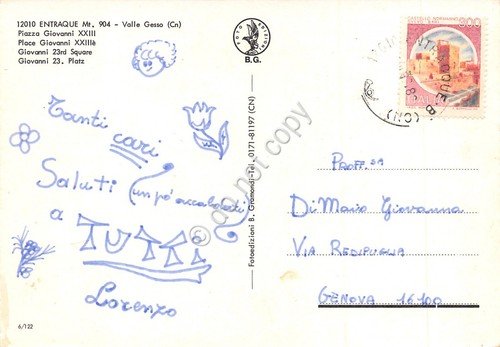 12010 ENTRAQUE Mt. 904 - Valle Gesso (Cn)
Piazza Giovanni XXIII
Place Giovanni XXIIIè
Giovanni 23rd Square
Giovanni 23. Platz
B.G.
Tanti cari
Saluti (un po' accaldati)
a TUTTI
Lorenzo
6/122
Fotoedizioni B. Gramondi - Tel. 0171-81197 (CN)
do not copy
800
PROFF.SA
DI MAIO GIOVANNA
VIA REDIPUGLIA
GENOVA 16100